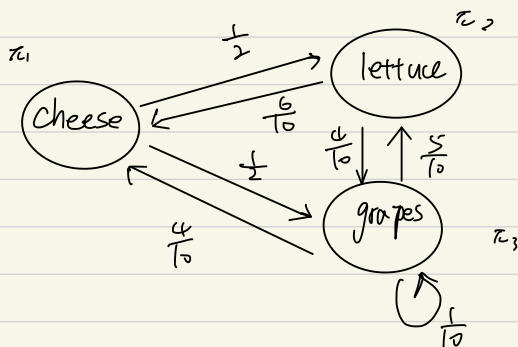 π₂
1/2
π₁
lettuce
cheese
6/10
4/10
5/10
1/2
grapes
4/10
π₃
1/10